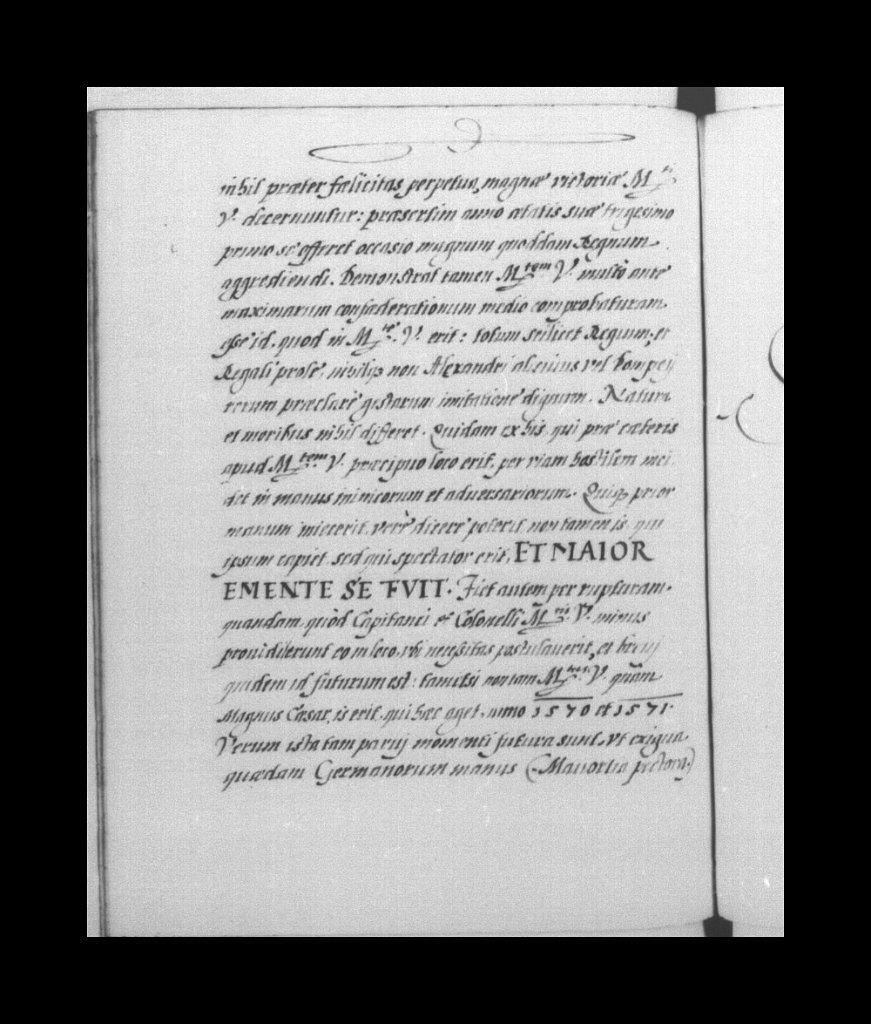 nihil præter fælicitas perpetua, magnæ victoriæ M.ti
V. decernuntur: præsertim anno ætatis suæ trigesimo
primo se offeret occasio magnum quoddam Regnum
aggrediendi. Demonstrat tamen M.tem V. multo ante
maximarum confæderationum medio comprobaturam
esse id, quod in M.te V. erit: totum scilicet Regium, et
Regali prole, nihilq3 non Alexandri alicuius vel Pompeij
rerum præclare gestarum imitatione dignum. Natura
et moribus nihil differet. Quidam ex his, qui præ cæteris
apud M.tem V. præcipuo loco erit, per viam hostilem inci
det in manus inimicorum et adversariorum. Quiq3 prior
manum iniecerit, vere dicere poterit non tamen is, qui
ipsum capiet, sed qui spectator erit, ET MAIOR
EMENTE SE FVIT. Fiet autem per rupturam
quandam, quòd Capitanei et Colonelli M.tis V. minus
providerunt eo in loco, vbi necessitas postulaverit, et brevi
quidem id futurum est: tametsi non tam M.tas V. quàm
Magnus Cæsar, is erit, qui hæc aget, anno 1570 et 1571.
Verum ista tam parvj momenti futura sunt, vt exigua
quædam Germanorum manus (Mavortia pectora)